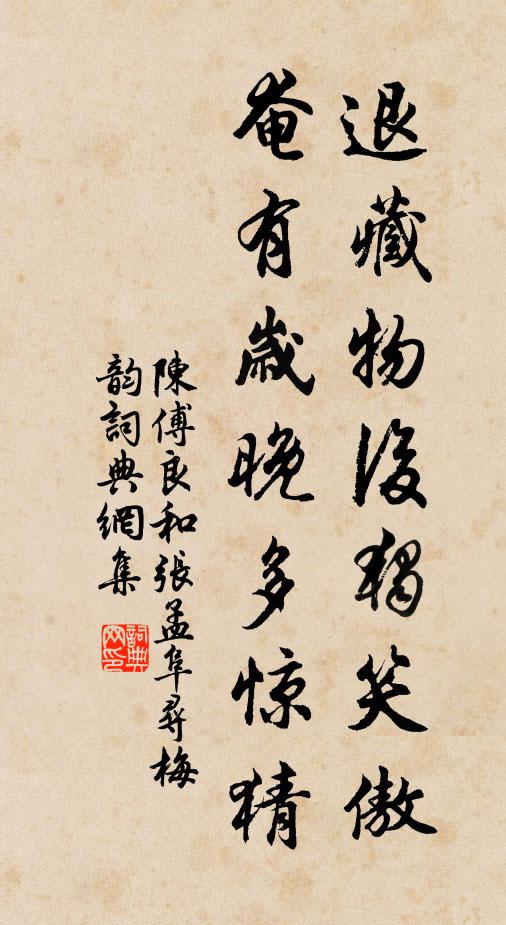 退藏物後獨笑傲
奄有歲晚多惊猜
陳傅良和張孟阜尋梅
韵詞典網集
詞典网印